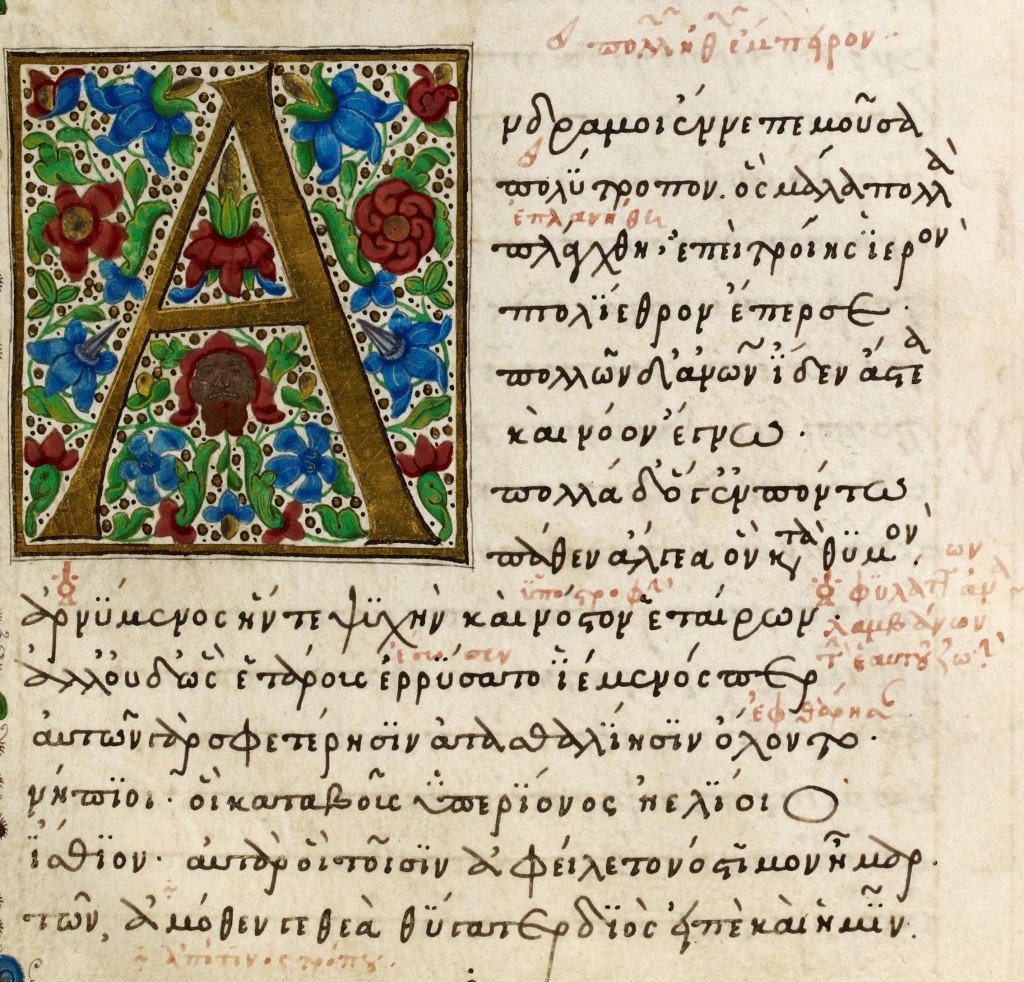 πολλῇ ἐμπειρον
Ανδρα μοι ἔννεπε μοῦσα
πολύτροπον. ὃς μάλα πολλὰ
ἐπλανήθη
πλάγχθη· ἐπεὶ τροίης ἱερὸν
πτολίεθρον ἔπερσε·
πολλῶν δ' ἀνθρώπων ἴδεν ἄστεα
καὶ νόον ἔγνω·
πολλὰ δ' ὅγ' ἐν πόντω
πάθεν ἄλγεα ὃν κατὰ θυμόν.
ὑποστροφὴν
φυλάττων
ἀρνύμενος ἥν τε ψυχὴν καὶ νόστον ἑταίρων
λαμβάνων
ἔσωσεν
ἀλλ' οὐδ' ὧς ἑτάροις ἐρρύσατο ἱέμενός περ
ἐφθάρησαν
αὐτῶν γὰρ σφετέρησιν ἀτασθαλίησιν ὄλοντο·
νήπιοι· οἳ κατὰ βοῦς ὑπερίονος ἠελίοιο
ἤσθιον· αὐτὰρ ὁ τοῖσιν ἀφείλετο νόστιμον ἦμαρ.
τῶν, ἁμόθεν γε θεὰ θύγατερ διὸς εἰπὲ καὶ ἡμῖν.
ἀπό τινος τρόπου.